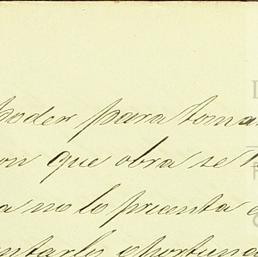 poder para toma
on que obra se
a no lo presenta
ntarlo oportuna